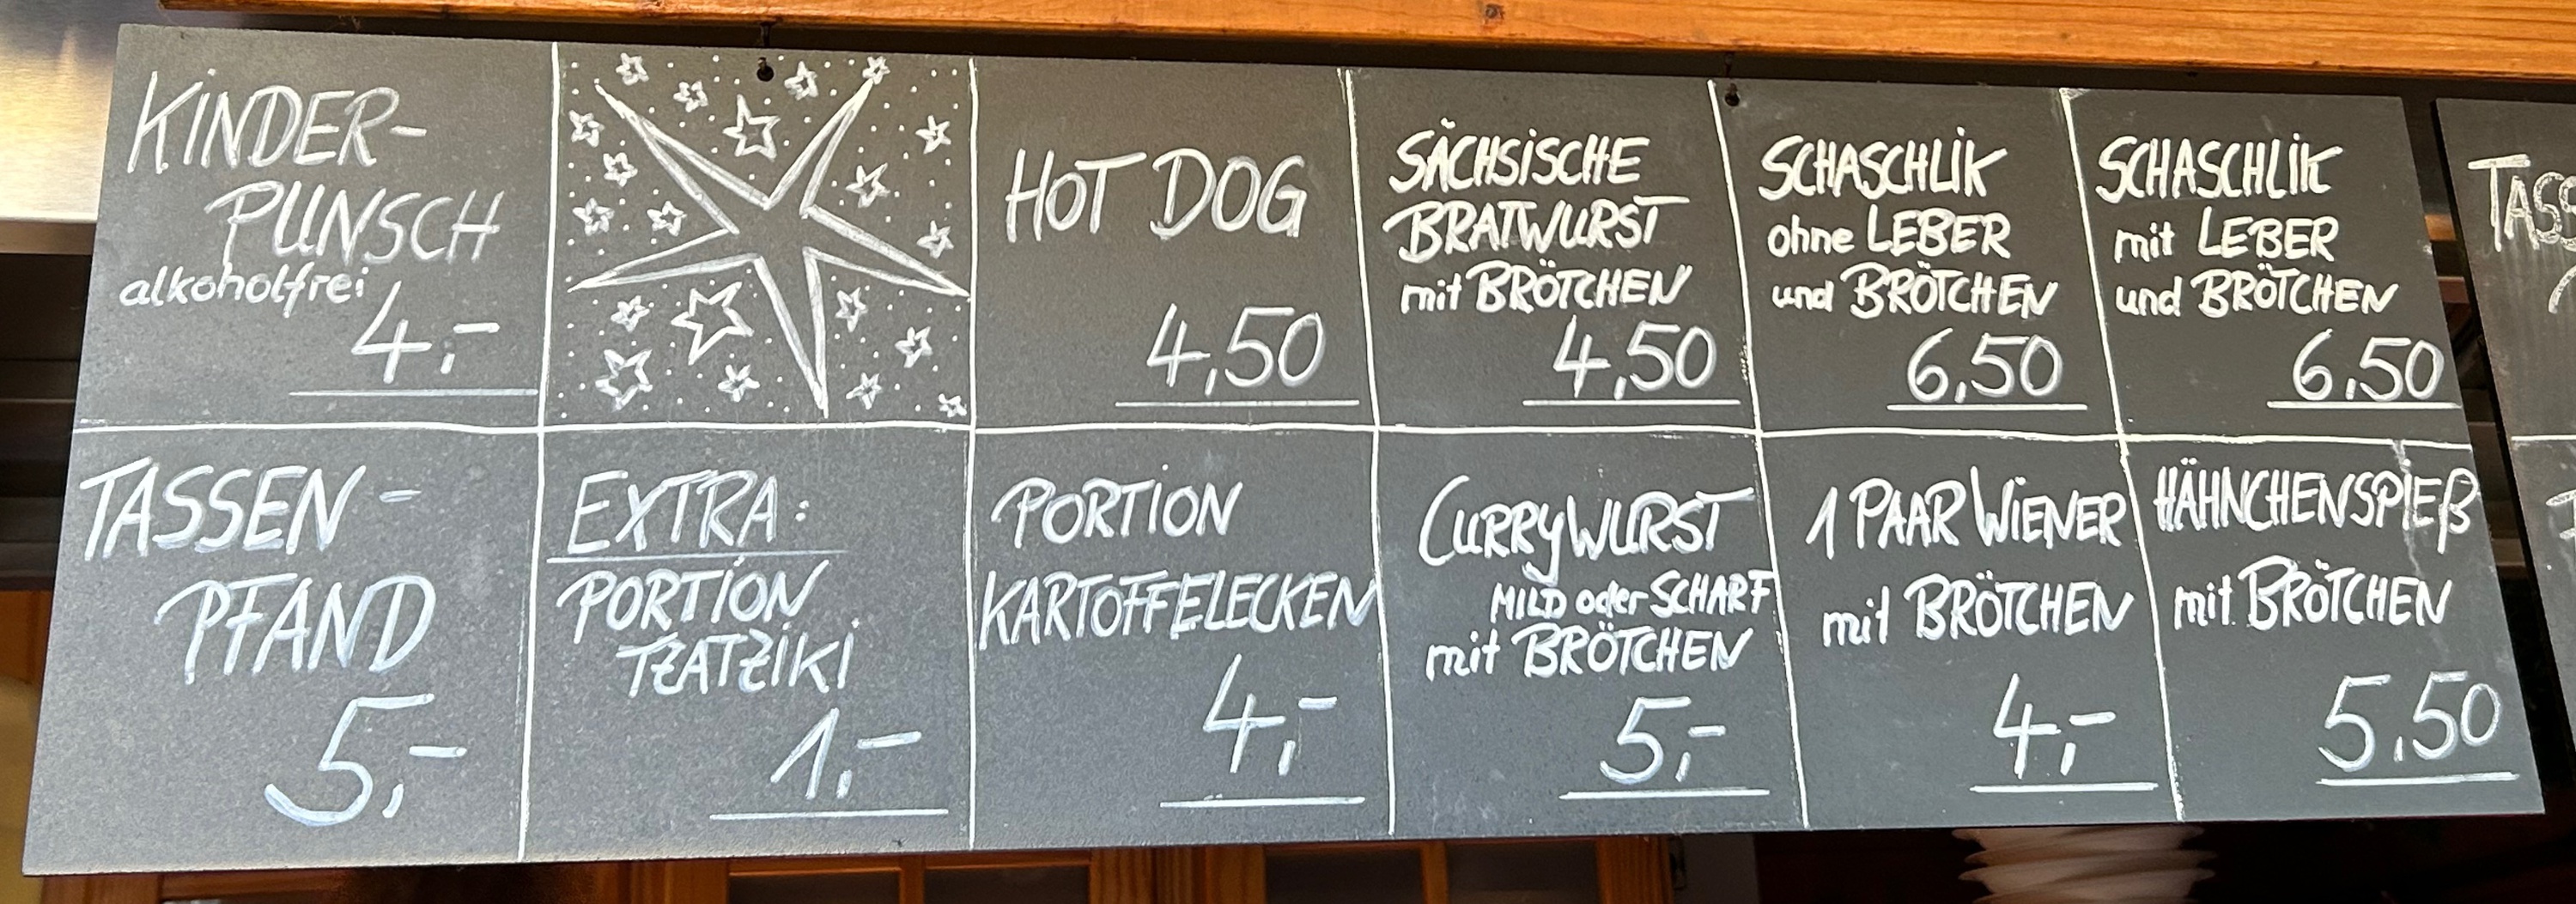 KINDER-
PUNSCH
alkoholfrei
4,-
HOT DOG
4,50
SÄCHSISCHE
BRATWURST
mit BRÖTCHEN
4,50
SCHASCHLIK
ohne LEBER
und BRÖTCHEN
6,50
SCHASCHLIK
mit LEBER
und BRÖTCHEN
6,50
TASSEN-
PFAND
5,-
EXTRA:
PORTION
TZATZIKI
1,-
PORTION
KARTOFFELECKEN
4,-
CURRYWURST
MILD oder SCHARF
mit BRÖTCHEN
5,-
1 PAAR WIENER
mit BRÖTCHEN
4,-
HÄHNCHENSPIEß
mit BRÖTCHEN
5,50